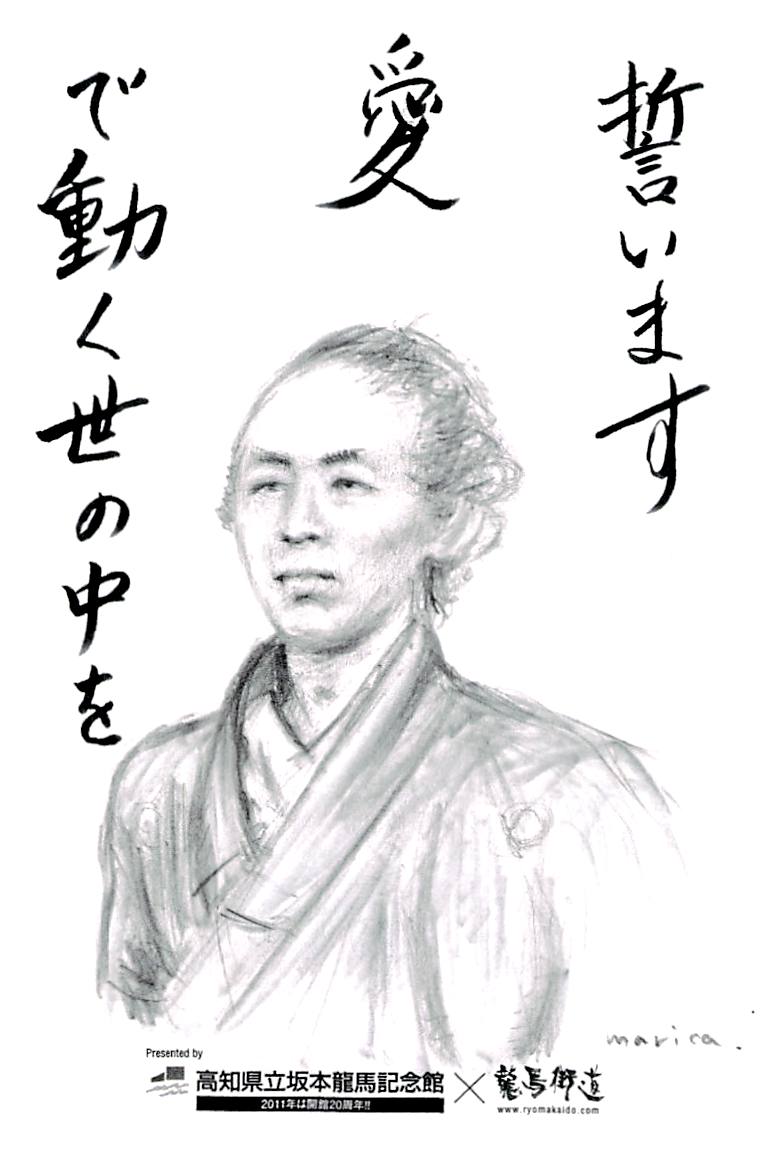 誓います
愛
で動く世の中を
marica.
Presented by
高知県立坂本龍馬記念館
2011年は開館20周年!!
×
龍馬街道
www.ryomakaido.com